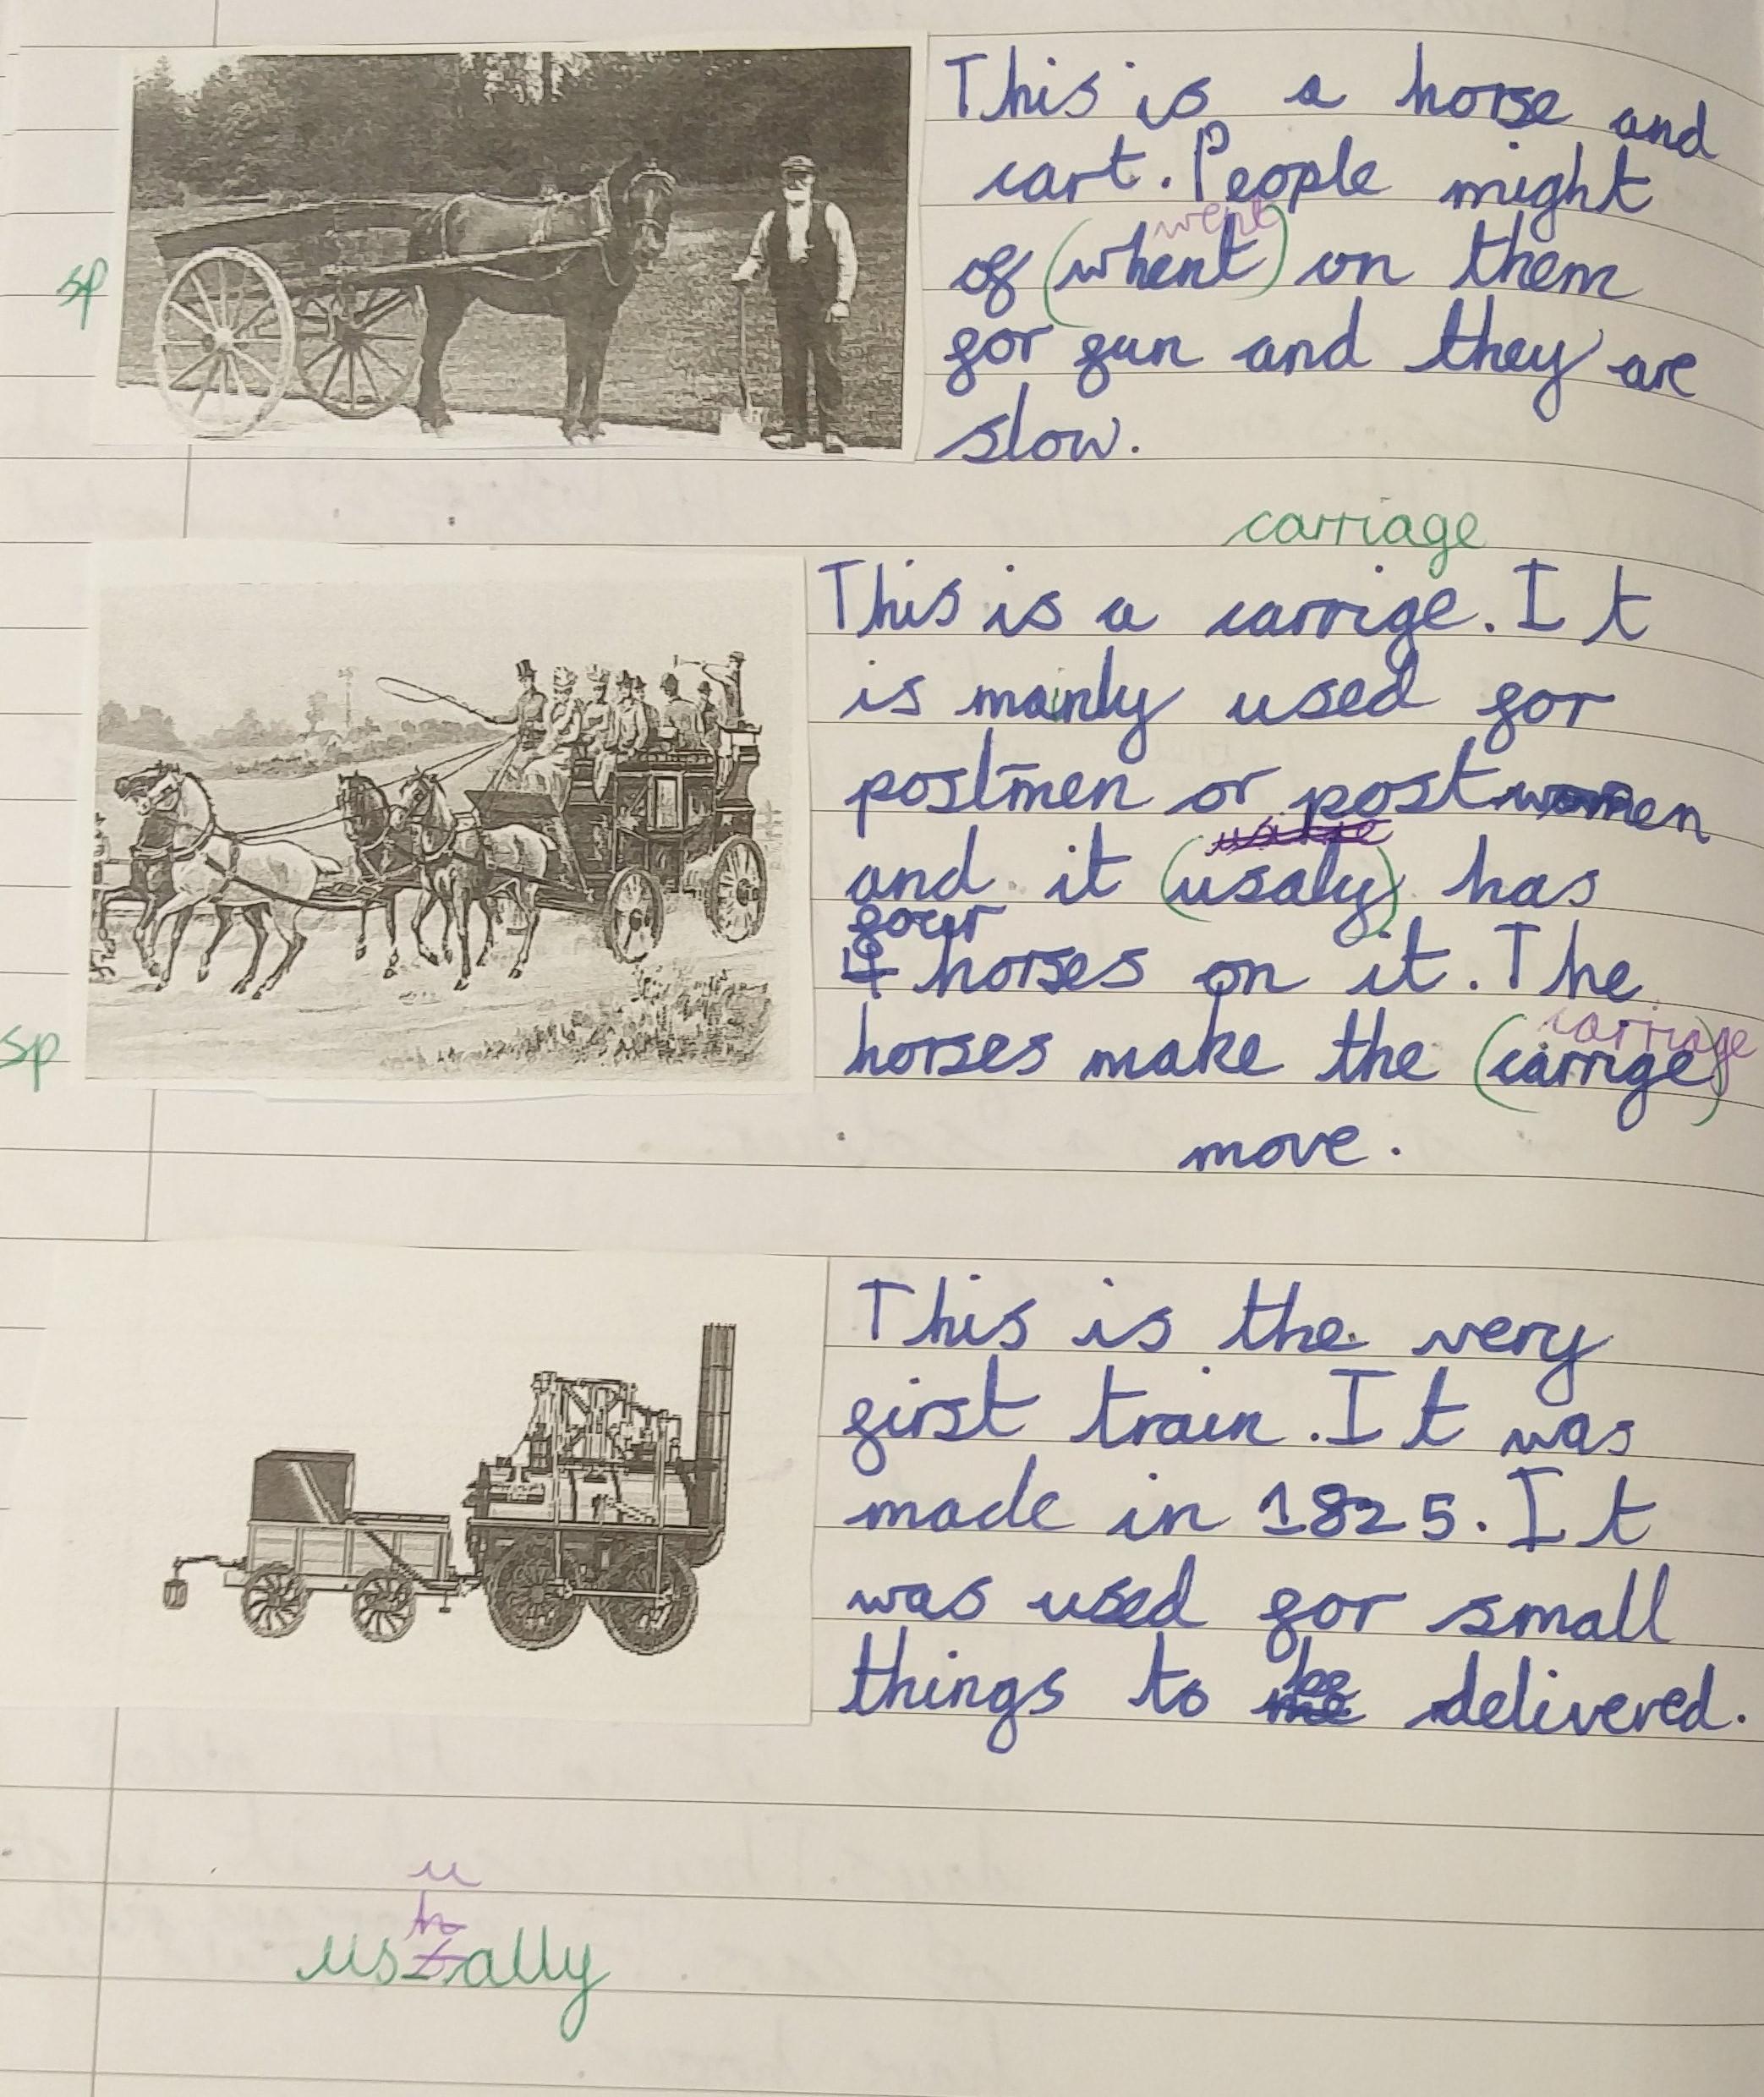 This is a horse and
cart. People might
went
sp
of (whent) on them
for fun and they are
slow.
carriage
This is a carrige. It
is mainly used for
postmen or postwomen
and it (usaly) has
four
4 horses on it. The
carriage
sp
horses make the (carrige)
move.
This is the very
first train. It was
made in 1825. It
was used for small
be
things to me delivered.
u
h
us ally